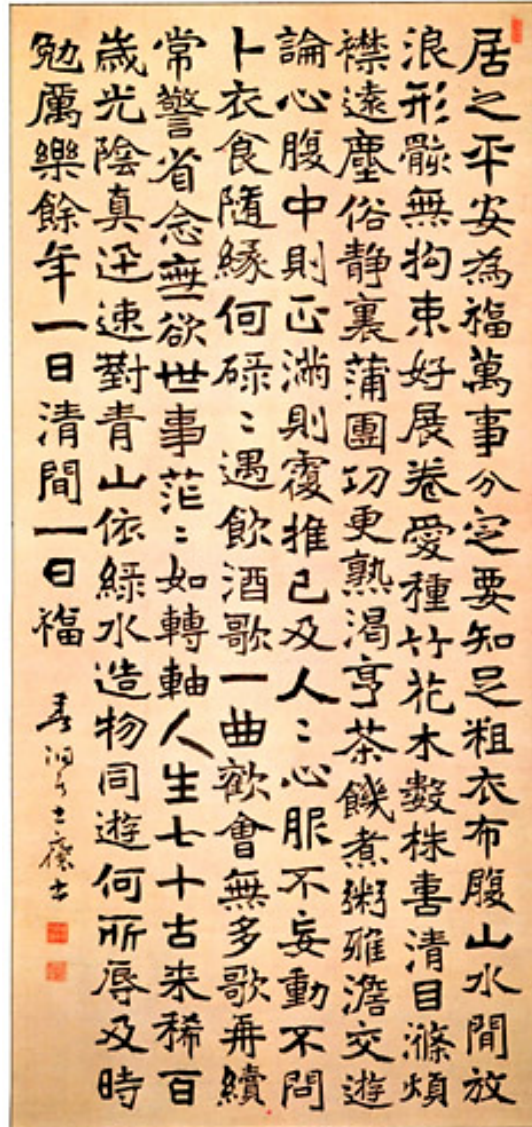 居之平安為福萬事分定要知足粗衣布腹山水間放
浪形骸無拘束好展卷愛種竹花木數株書清目滌煩
襟遠塵俗靜裏蒲團功更熟渴亨茶饑煮粥雅澹交遊
論心腹中則正滿則覆推己及人〻心服不妄動不問
卜衣食隨緣何碌〻遇飲酒歌一曲歡會無多歌再續
常警省念無欲世事茫〻如轉軸人生七十古来稀百
歲光陰真迅速對青山依綠水造物同遊何所辱及時
勉厲樂餘年一日清間一日福